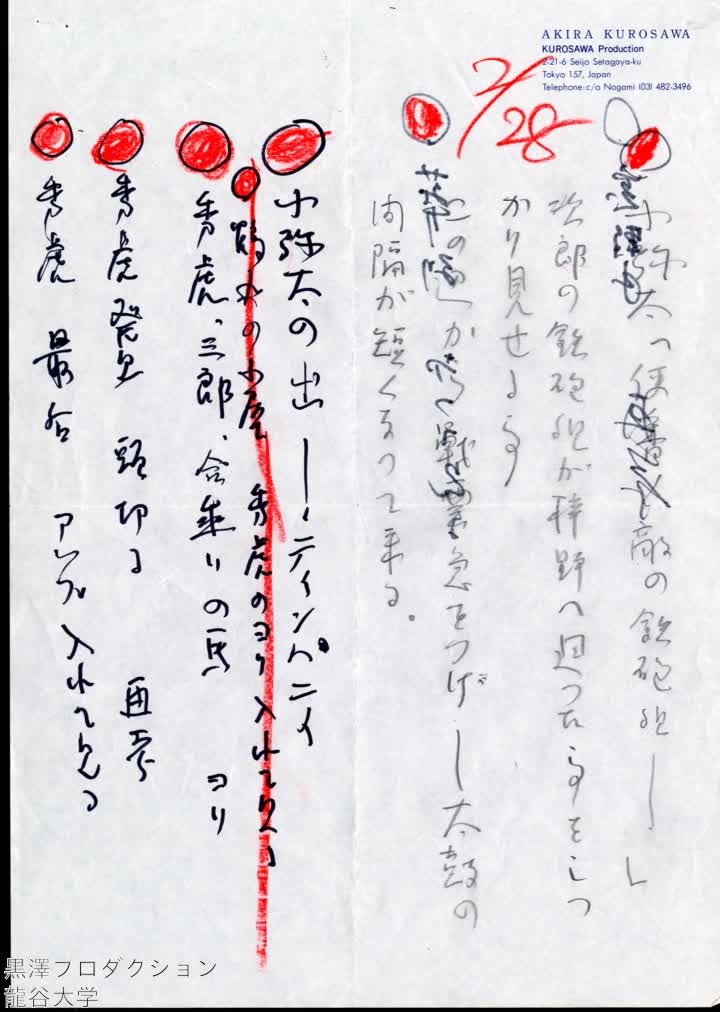 AKIRA KUROSAWA
KUROSAWA Production
2-21-6 Seijo Setagaya-ku
Tokyo 157, Japan
Telephone: c/o Nogami (03) 482-3496
2/28
小弥太 敵の鉄砲組ー」
次郎の鉄砲組が梓野へ廻った事をしっ
かり見せる事
急をつげ ー太鼓の
間隔が短くなって来る。
小弥太の出 ー ティンパニイ
の小屋 秀虎のヨリ入れて見る
秀虎、三郎、合乗りの馬 ヨリ
秀虎発見 頭切る 再考
秀虎 最后 アップ入れて見る
黒澤プロダクション
龍谷大学